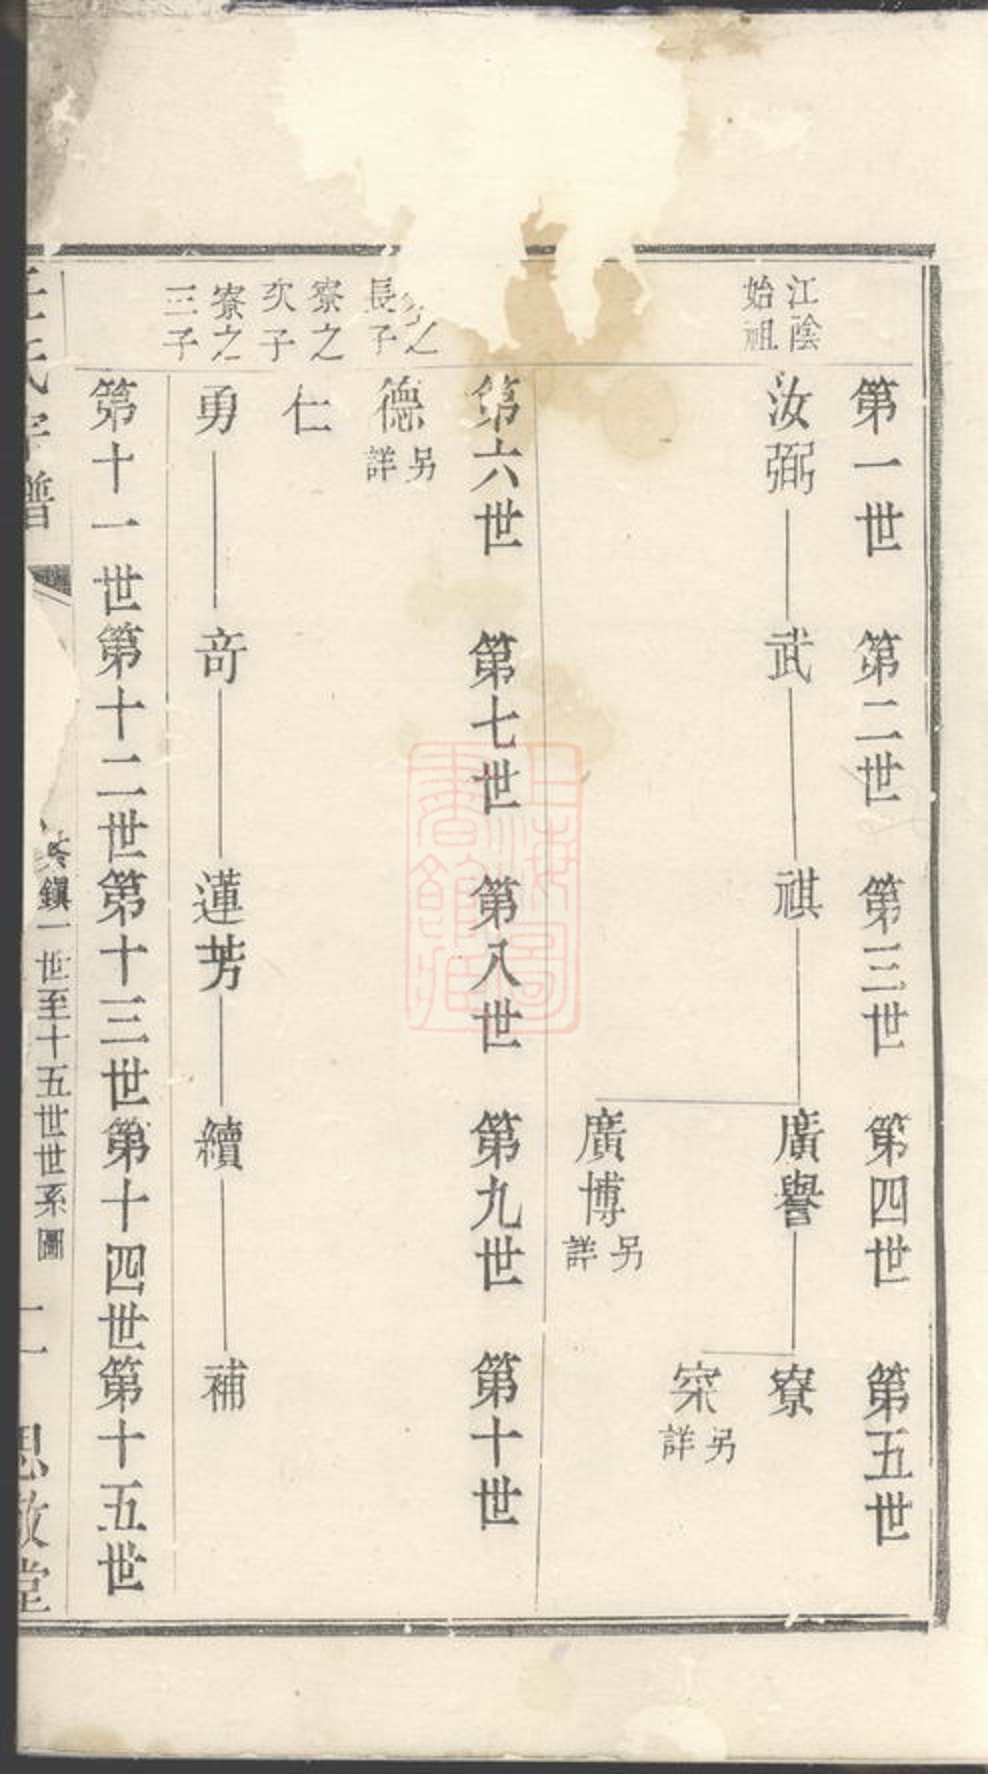 江陰
始祖
第一世 第二世 第三世 第四世 第五世
汝弼 武 祺 廣譽 寮
寀 另詳
廣博 另詳
第六世 第七世 第八世 第九世 第十世
之
長子
德 另詳
寮之
次子
仁
寮之
三子
勇 奇 蓮芳 續 補
第十一世 第十二世 第十三世 第十四世 第十五世
氏宗譜
鎮一世至十五世世系圖
二
思敬堂
上海圖書館藏